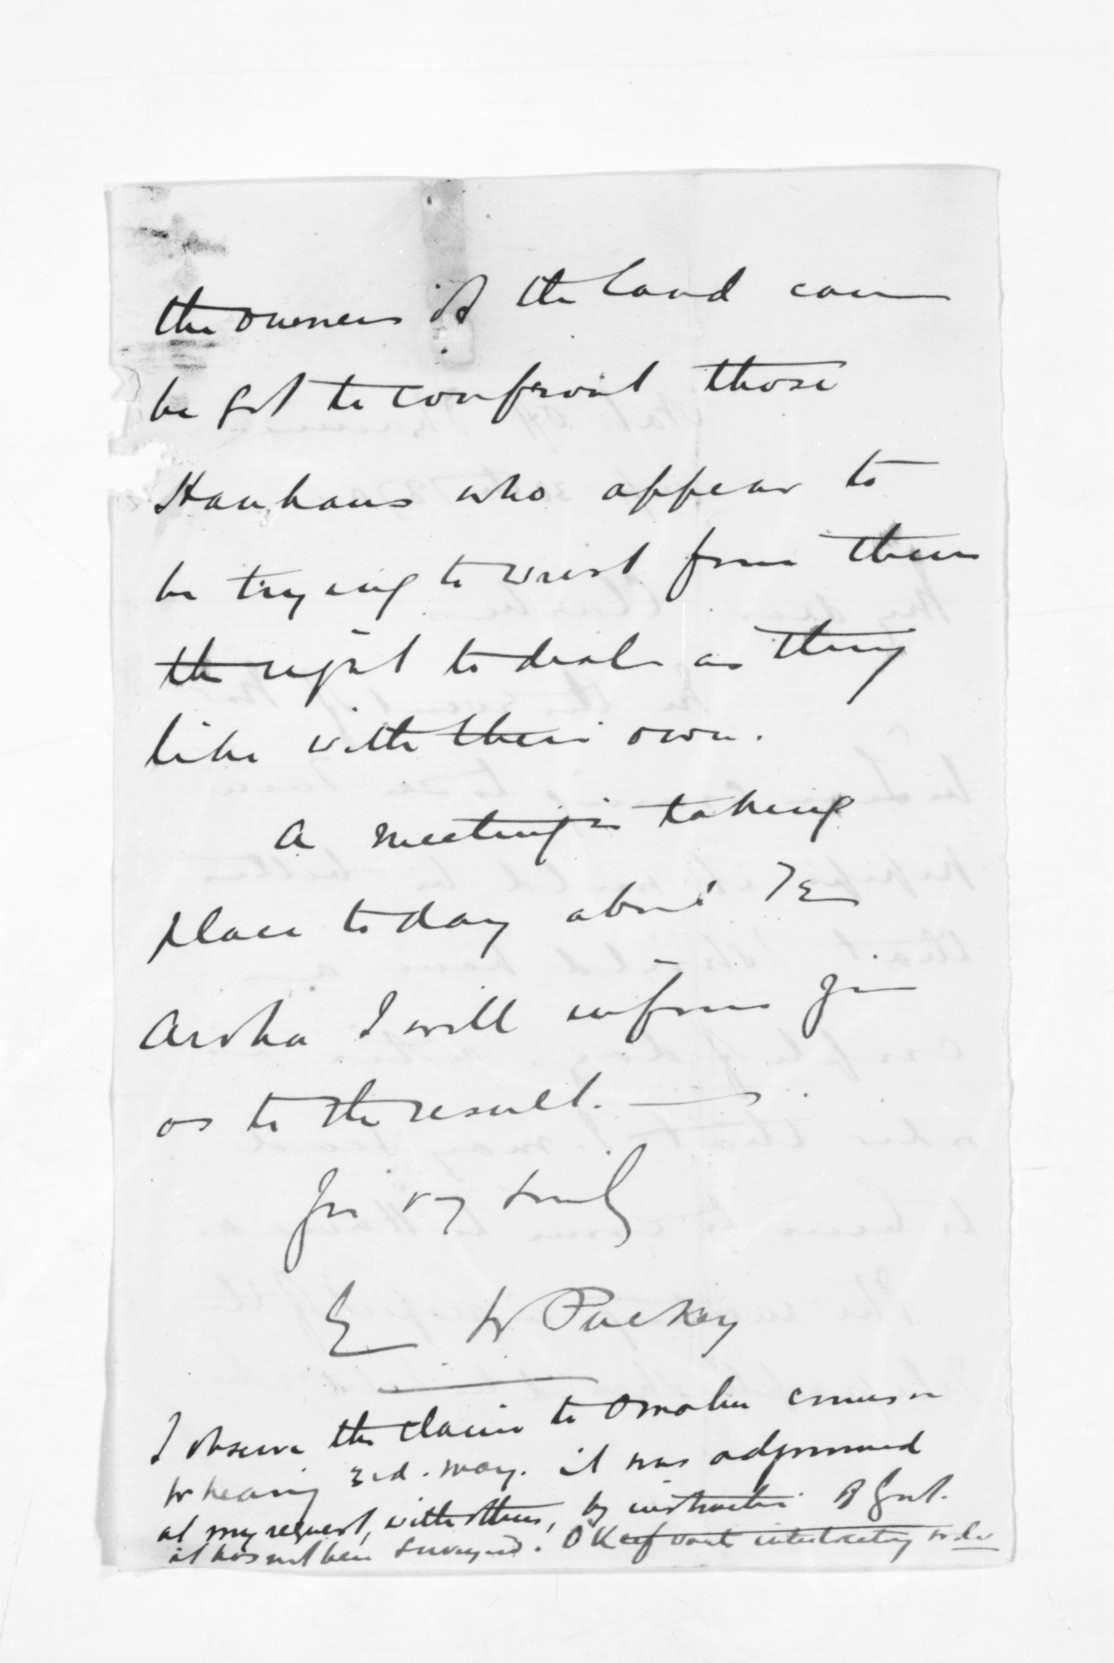 the owners of the land can
be got to confront those
Hauhaus who appear to
be trying to wrest from them
the right to deal as they
like with their own.
A meeting is taking
place today about Te
Aroha I will inform you
as to the result. —
Yrs vy truly
E W Puckey
I observe the claim to Omahu comes on
for hearing 3rd. May. it was adjourned
at my request, with others, by instruction of Govt.
it has not been surveyed. O'Keef wants interlocutory order